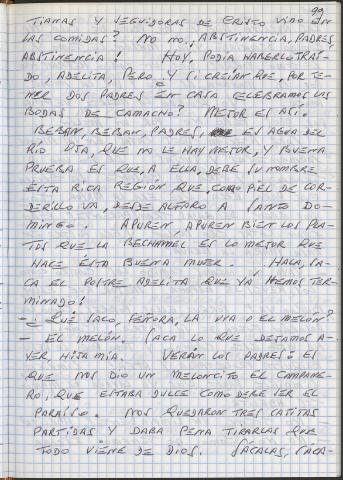 99
TIANAS Y SEGUIDORAS DE CRISTO VINO EN
LAS COMIDAS? NO NO, ABSTINENCIA, PADRES,
ABSTINENCIA! HOY, PODÍA HABERLO TRAÍ-
DO, ADELITA, PERO ¿Y SI CREÍAN QUE, POR TE-
NER DOS PADRES EN CASA CELEBRAMOS LAS
BODAS DE CAMACHO? MEJOR ES ASÍ.
BEBAN, BEBAN, PADRES, ES AGUA DEL
RÍO OJA, QUE NO LE HAY MEJOR, Y BUENA
PRUEBA ES QUE, A ELLA, DEBE SU NOMBRE
ESTA RICA REGIÓN QUE, COMO PIEL DE COR-
DERILLO VA, DESDE ALFARO A SANTO DO-
MINGO. APUREN, APUREN BIEN LOS PLA-
TOS QUE LA BECHAMEL ES LO MEJOR QUE
HACE ESTA BUENA MUJER. ¡HALA, SA-
CA EL POSTRE ADELITA QUE YA HEMOS TER-
MINADO!
- ¿QUÉ SACO, SEÑORA, LA UVA O EL MELÓN?
- EL MELÓN. SACA LO QUE DEJAMOS A-
YER, HIJA MÍA. VERÁN LOS PADRES: ES
QUE NOS DIO UN MELONCITO EL CAMPANE-
RO, QUE ESTABA DULCE COMO DEBE SER EL
PARAÍSO. NOS QUEDARON TRES CATITAS
PARTIDAS Y DABA PENA TIRARLAS QUE
TODO VIENE DE DIOS. SÁCALAS, SÁCA-